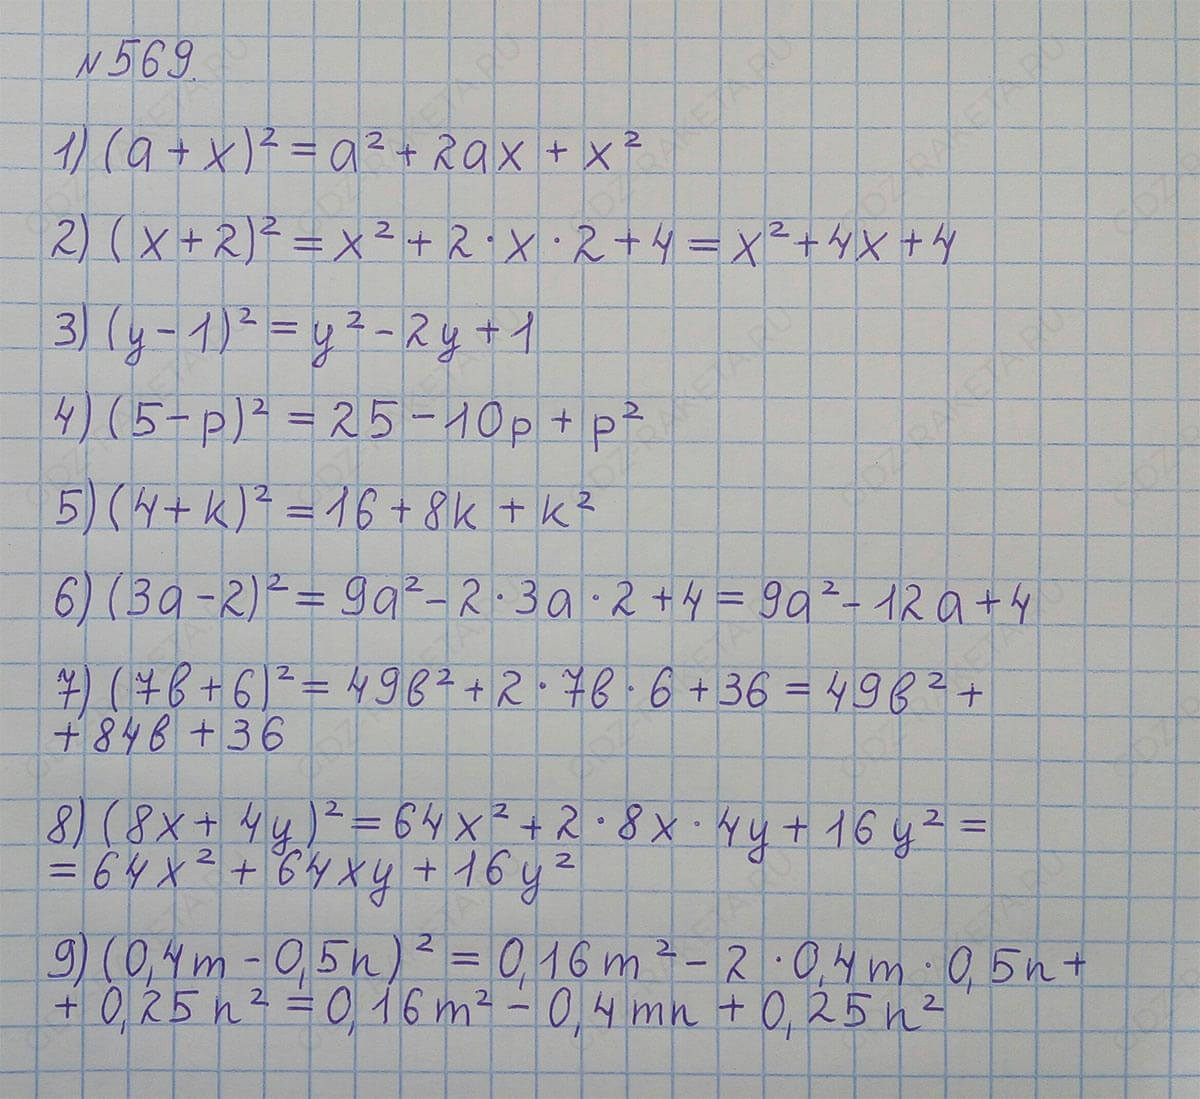 №569.
1) (a + x)² = a² + 2ax + x²
2) (x + 2)² = x² + 2 · x · 2 + 4 = x² + 4x + 4
3) (y - 1)² = y² - 2y + 1
4) (5 - p)² = 25 - 10p + p²
5) (4 + k)² = 16 + 8k + k²
6) (3a - 2)² = 9a² - 2 · 3a · 2 + 4 = 9a² - 12a + 4
7) (7в + 6)² = 49в² + 2 · 7в · 6 + 36 = 49в² +
+ 84в + 36
8) (8x + 4y)² = 64x² + 2 · 8x · 4y + 16y² =
= 64x² + 64xy + 16y²
9) (0,4m - 0,5n)² = 0,16m² - 2 · 0,4m · 0,5n +
+ 0,25n² = 0,16m² - 0,4mn + 0,25n²
GDZ-RAKETA.RU